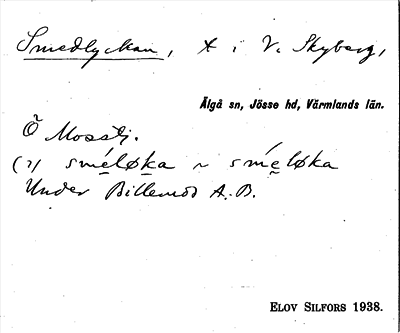 Smedlyckan, t i V. Skyberg,
Älgå sn, Jösse hd, Värmlands län.
Ö Mosstj.
(?) sméløka ~ sméløka
Under Billemod A.B.
ELOV SILFORS 1938.